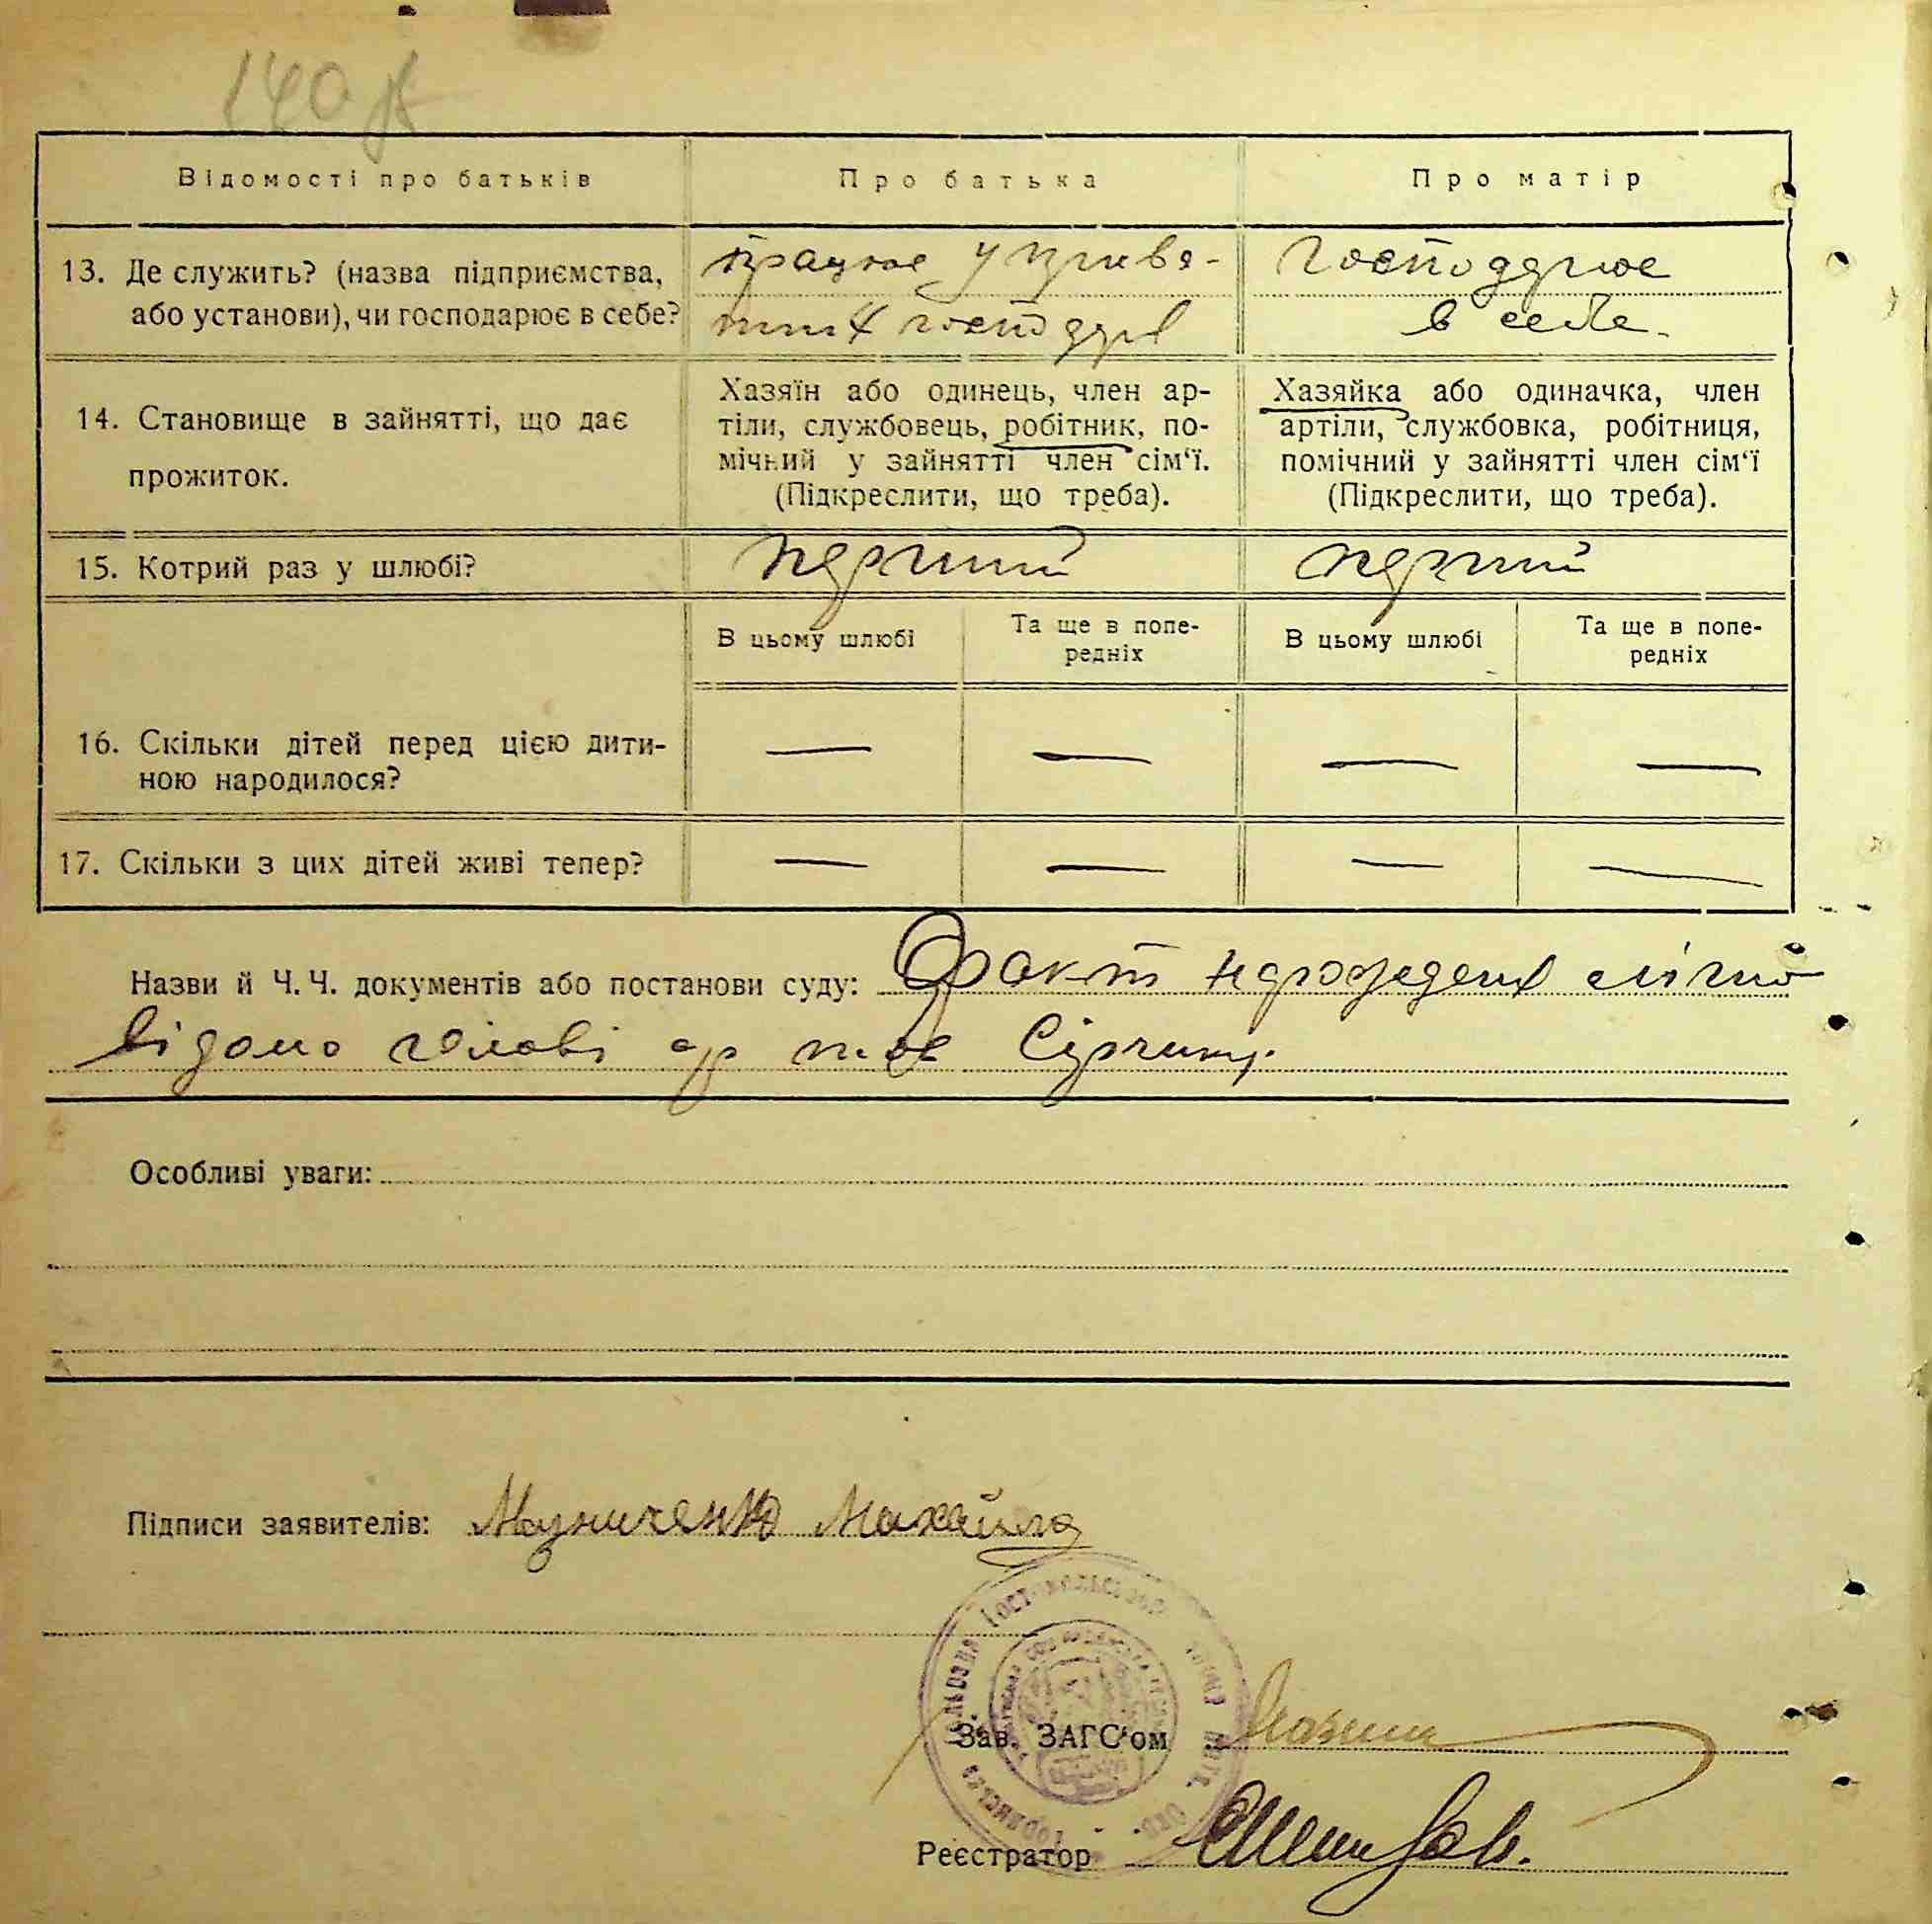 140
Відомості про батьків
Про батька
Про матір
13. Де служить? (назва підприємства,
або установи), чи господарює в себе?
працює у прива-
тних господарів
господарює
в себе.
14. Становище в зайнятті, що дає
прожиток.
Хазяїн або одинець, член ар-
тіли, службовець, робітник, по-
мічний у зайнятті член сім‘ї.
(Підкреслити, що треба).
Хазяйка або одиначка, член
артіли, службовка, робітниця,
помічний у зайнятті член сім‘ї
(Підкреслити, що треба).
15. Котрий раз у шлюбі?
перший
перший
В цьому шлюбі
Та ще в попе-
редніх
В цьому шлюбі
Та ще в попе-
редніх
16. Скільки дітей перед цією дити-
ною народилося?
— — — —
17. Скільки з цих дітей живі тепер?
— — — —
Назви й Ч. Ч. документів або постанови суду: Факт народження
відомо голові с/р тов
Особливі уваги:
Підписи заявителів: Музиченко Михайло
Зав. ЗАГС‘ом
Реєстратор